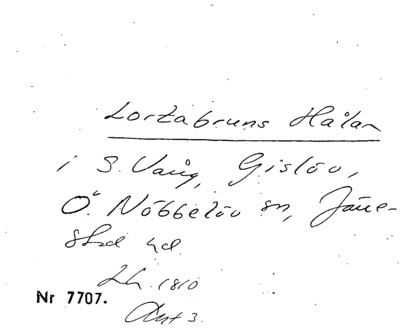 Lortabruns Hålan
i S. Vång, Gislöv,
Ö. Nöbbelöv sn, Järre-
stad hd.
Lh. 1810
Nr 7707.
Akt 3.